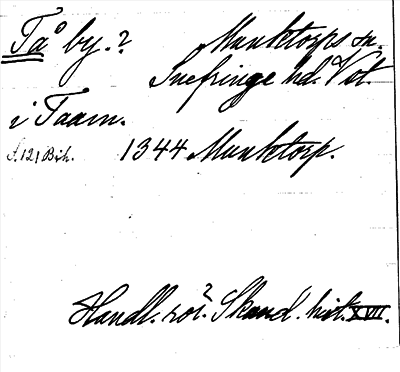 Tå by.? Munktorps sn.
Snefringe hd. Vst.
i Taam.
S. 121 Bih. 1344 Munktorp.
Handl. rör? Skand. hist. XVII.